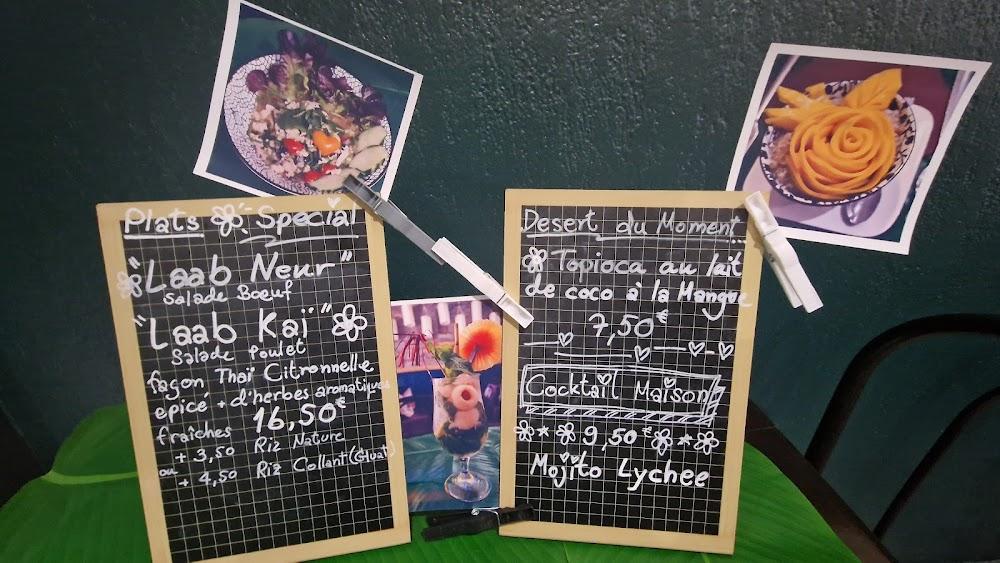 Plats Special
"Laab Neur"
Salade Boeuf
"Laab Kaï"
Salade Poulet
façon Thaï Citronnelle
epicé + d'herbes aromatiques
fraîches 16,50€
+ 3,50 Riz Nature
ou + 4,50 Riz Collant (Gluat)
Desert du Moment
Topioca au lait
de coco à la Mangue
7,50€
Cocktail Maison
9,50€
Mojito Lychee